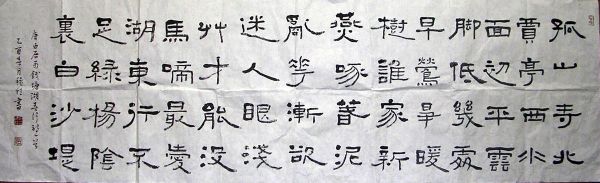 孤山寺北
賈亭西水
面初平雲
脚低幾處
早鶯爭暖
樹誰家新
燕啄春泥
亂華漸欲
迷人眼淺
艸才能沒
馬啼最愛
湖東行不
足綠楊陰
裏白沙堤
唐白居易錢塘湖春行詩一首
乙酉春月書